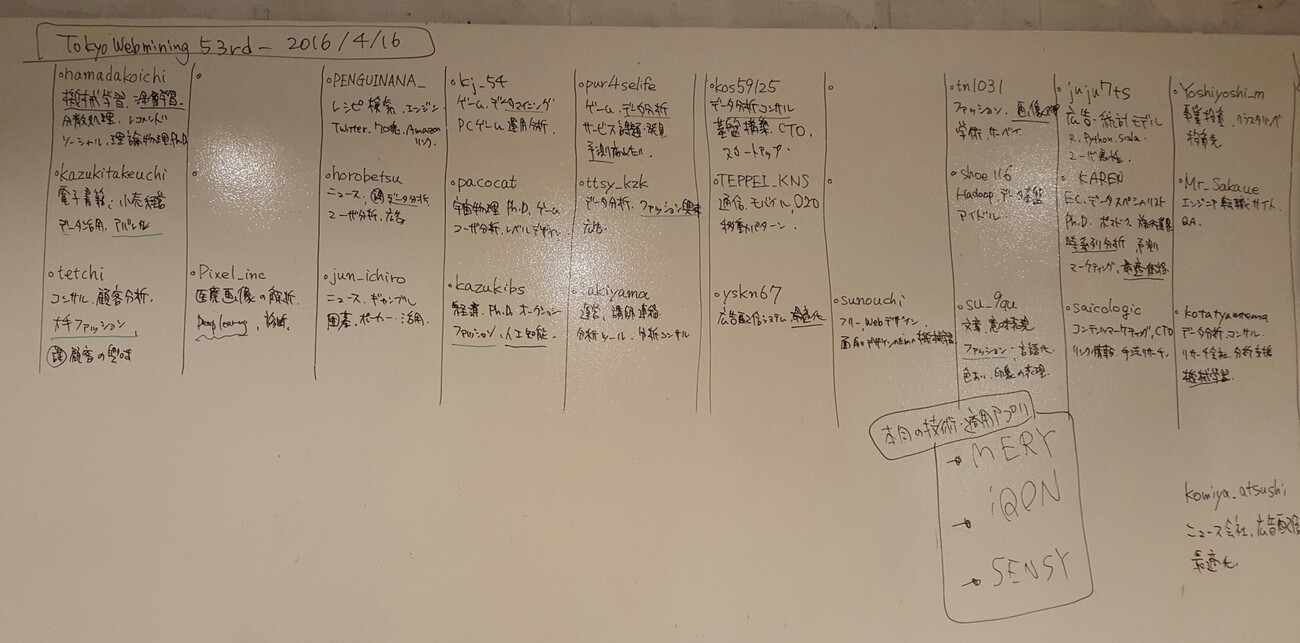 Tokyo Webmining 53rd - 2016/4/16
hamadakoichi
機械学習、深層学習、
分散処理・レコメンド
ソーシャル、理論物理Ph.D
kazukitakeuchi
電子書籍・小売
データ活用、アパレル
tetchi
コンサル、顧客分析、
大手ファッション、
顧客の興味
Pixel_inc
医療画像の解析、
Deep learning、診断、
PENGUINANA_
レシピ検索、エンジン
Twitter、Amazon
horobetsu
ニュース、データ分析
ユーザ分析、広告
jun_ichiro
ニュース、ギャンブル
囲碁、ポーカー、活用、
kj_54
ゲーム、データマイニング
PCゲーム 運用分析、
pacocat
宇宙物理 Ph.D、ゲーム
ユーザ分析、レベルデザイン
kazukibs
経済、Ph.D、オークション
ファッション、人工知能、
pur4selife
ゲーム、データ分析
サービス課題・発見
ttsy_kzk
データ分析、ファッション興味
akiyama
運営、講師
分析ツール、分析コンサル
kos59125
データ分析コンサル
基盤構築、CTO、
スタートアップ・
TEPPEI_KNS
通信、モバイル、O2O
移動パターン、
yskn67
広告配信システム、最適化
sunouchi
フリー、Webデザイン、
画像とデザインのための機械学習
tn1031
ファッション、画像処理
学術、サーベイ
shoe116
Hadoop、データ基盤
アイドル
su_9qu
文書、意味表現
ファッション、言語化、
色あい、印象の表現、
juju7ts
広告・統計モデル
R、Python、Scala
KAREN
EC、データスペシャリスト
Ph.D、ポスドク
時系列分析 予測
マーケティング、最適価格
saicologic
コンテンツマーケティング、CTO
リンク情報
Yoshiyoshi_m
事業投資
投資先
Mr_Sakaue
エンジニア転職サイト、
QA、
kotatyamtema
データ分析、コンサル、
リサーチ会社、分析支援
機械学習
本日の技術・適用アプリ
MERY
iQON
SENSY
komiya_atsushi
ニュース会社、広告配信
最適化